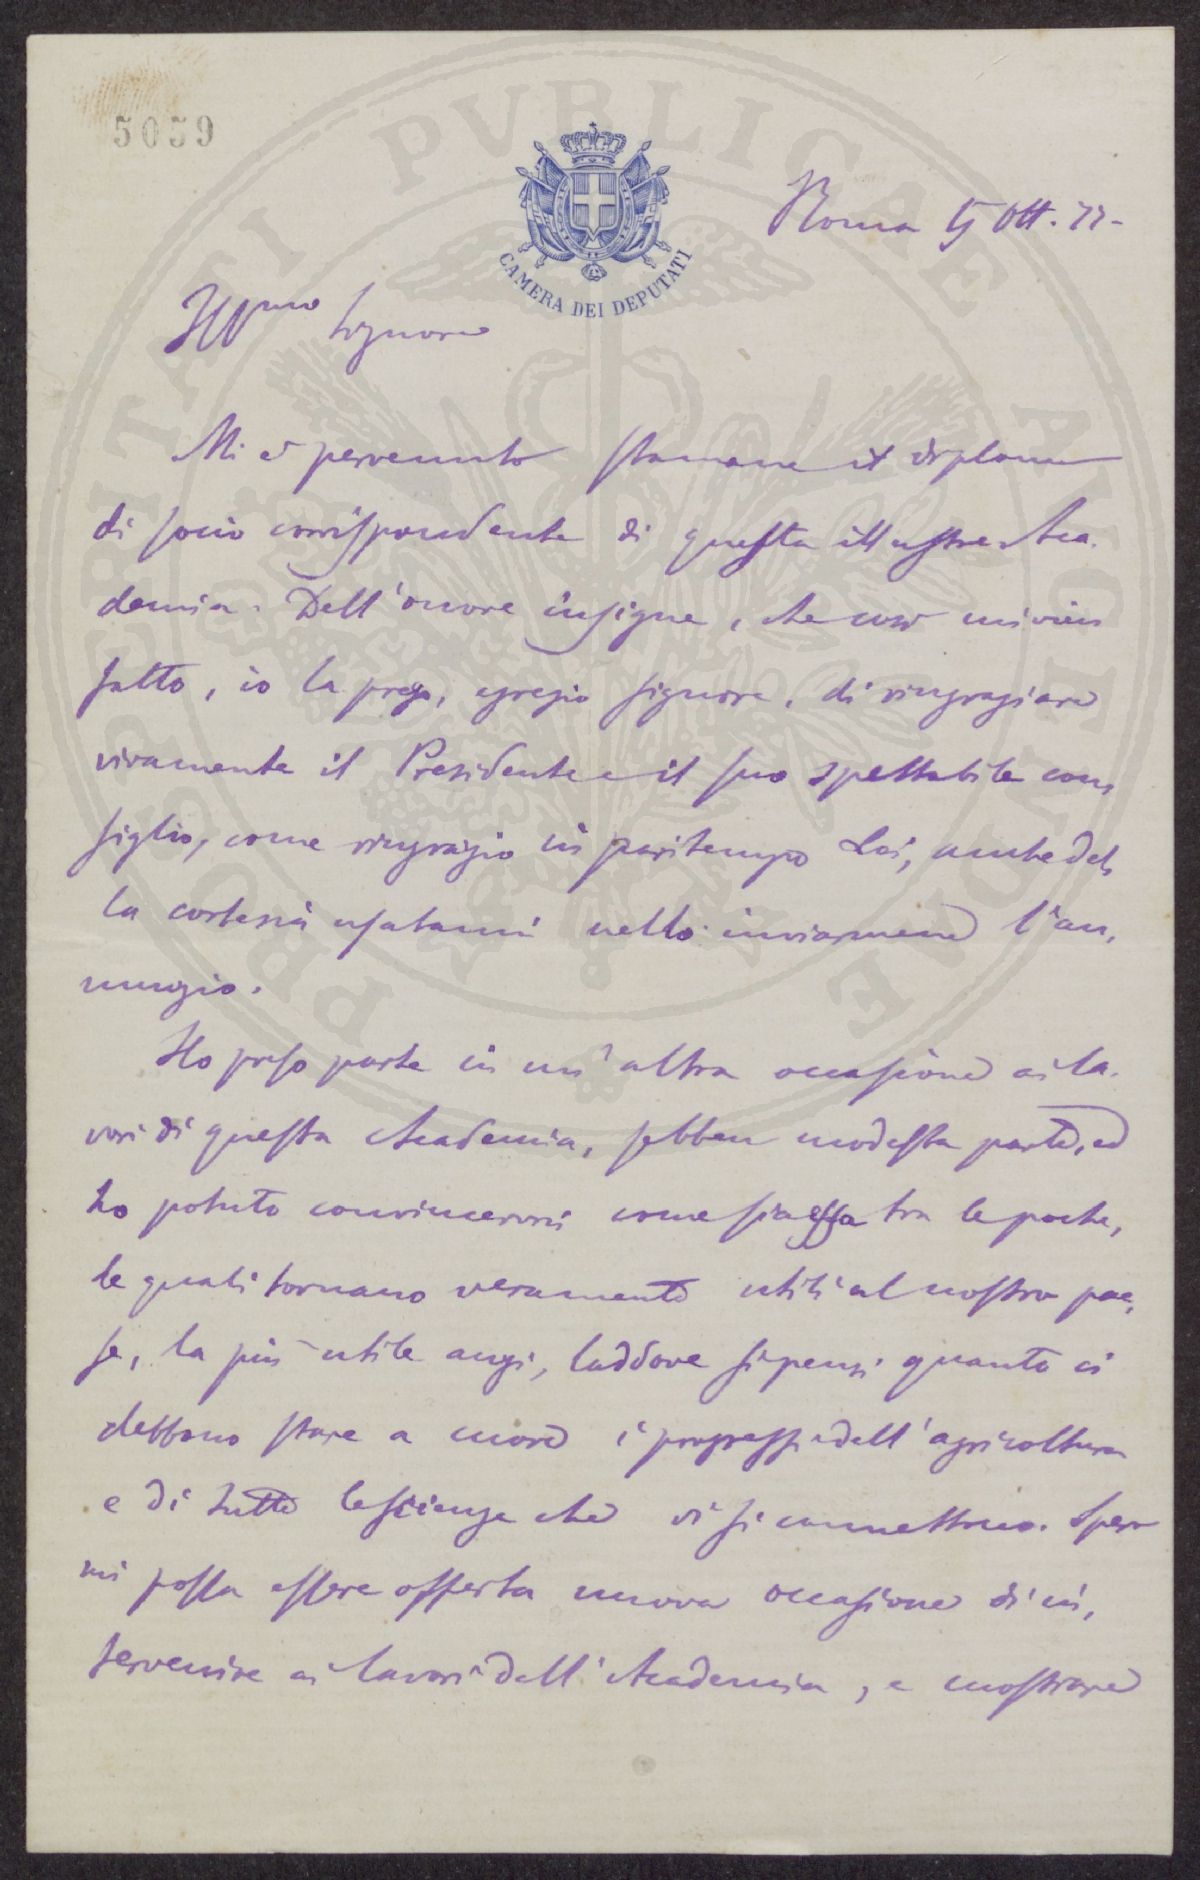 5059
CAMERA DEI DEPUTATI
Roma 5 Ott. 77-
Illmo Signore
Mi è pervenuto stamane il diploma
di socio corrispondente di questa illustre Aca-
demia. Dell'onore insigne, che così mi vien
fatto, io la prego, egregio signore, di ringraziare
vivamente il Presidente e il suo spettabile con-
siglio, come ringrazio in pari tempo Lei, anche del-
la cortesia usatami nello inviarmene l'an-
nunzio.
Ho preso parte in un'altra occasione ai la-
vori di questa Academia, sebben modesta parte, ed
ho potuto convincermi come sia essa tra le poche,
le quali tornano veramente utili al nostro pae-
se, la più utile anzi, laddove si pensi quanto ci
debbono stare a cuore i progressi dell'agricoltura
e di tutte le scienze che vi si connettono. Spero
mi possa essere offerta nuova occasione di in-
tervenire ai lavori dell'Academia, e mostrare
PROSPERITATI PVBLICAE AVGENDAE